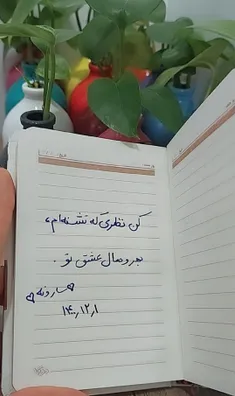 کن نظری که تشنه‌ام،
بهر وصال عشق تو.
سارونه
۱۴۰۰٫۱۲٫۱